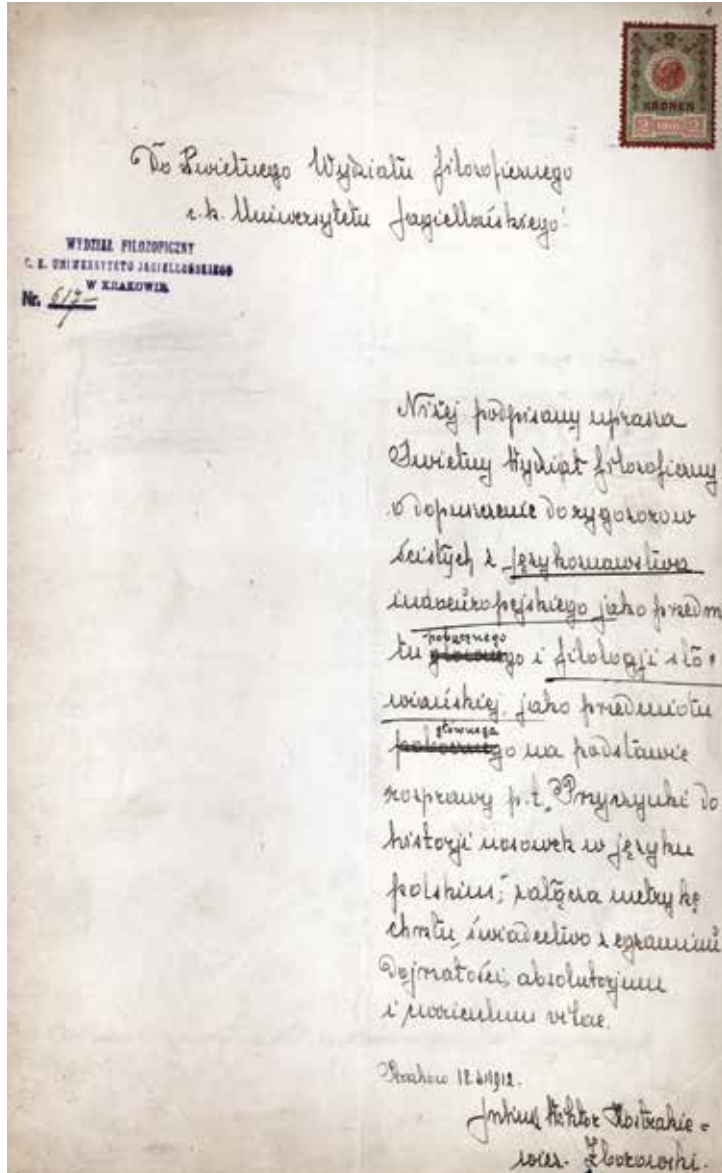 2
KRONEN
2 1910 2
Do Świetnego Wydziału filozoficznego
c.k. Uniwersytetu Jagiellońskiego.
WYDZIAŁ FILOZOFICZNY
C. K. UNIWERSYTETU JAGIELLOŃSKIEGO
W KRAKOWIE
Nr. 617
Niżej podpisany uprasza
Świetny Wydział filozoficzny
o dopuszczenie do rygorozów
ścisłych z językoznawstwa
indoeuropejskiego jako przedm
tu pobocznego i filologji sło-
wiańskiej jako przedmiotu
głównego na podstawie
rozprawy p.t. „Przyczynki do
historji nosówek w języku
polskim; załącza metrykę
chrztu, świadectwo z egzaminu
dojrzałości, absolutorjum
i curriculum vitae.
Kraków 1912.
Juliusz Wiktor
Zborowski.